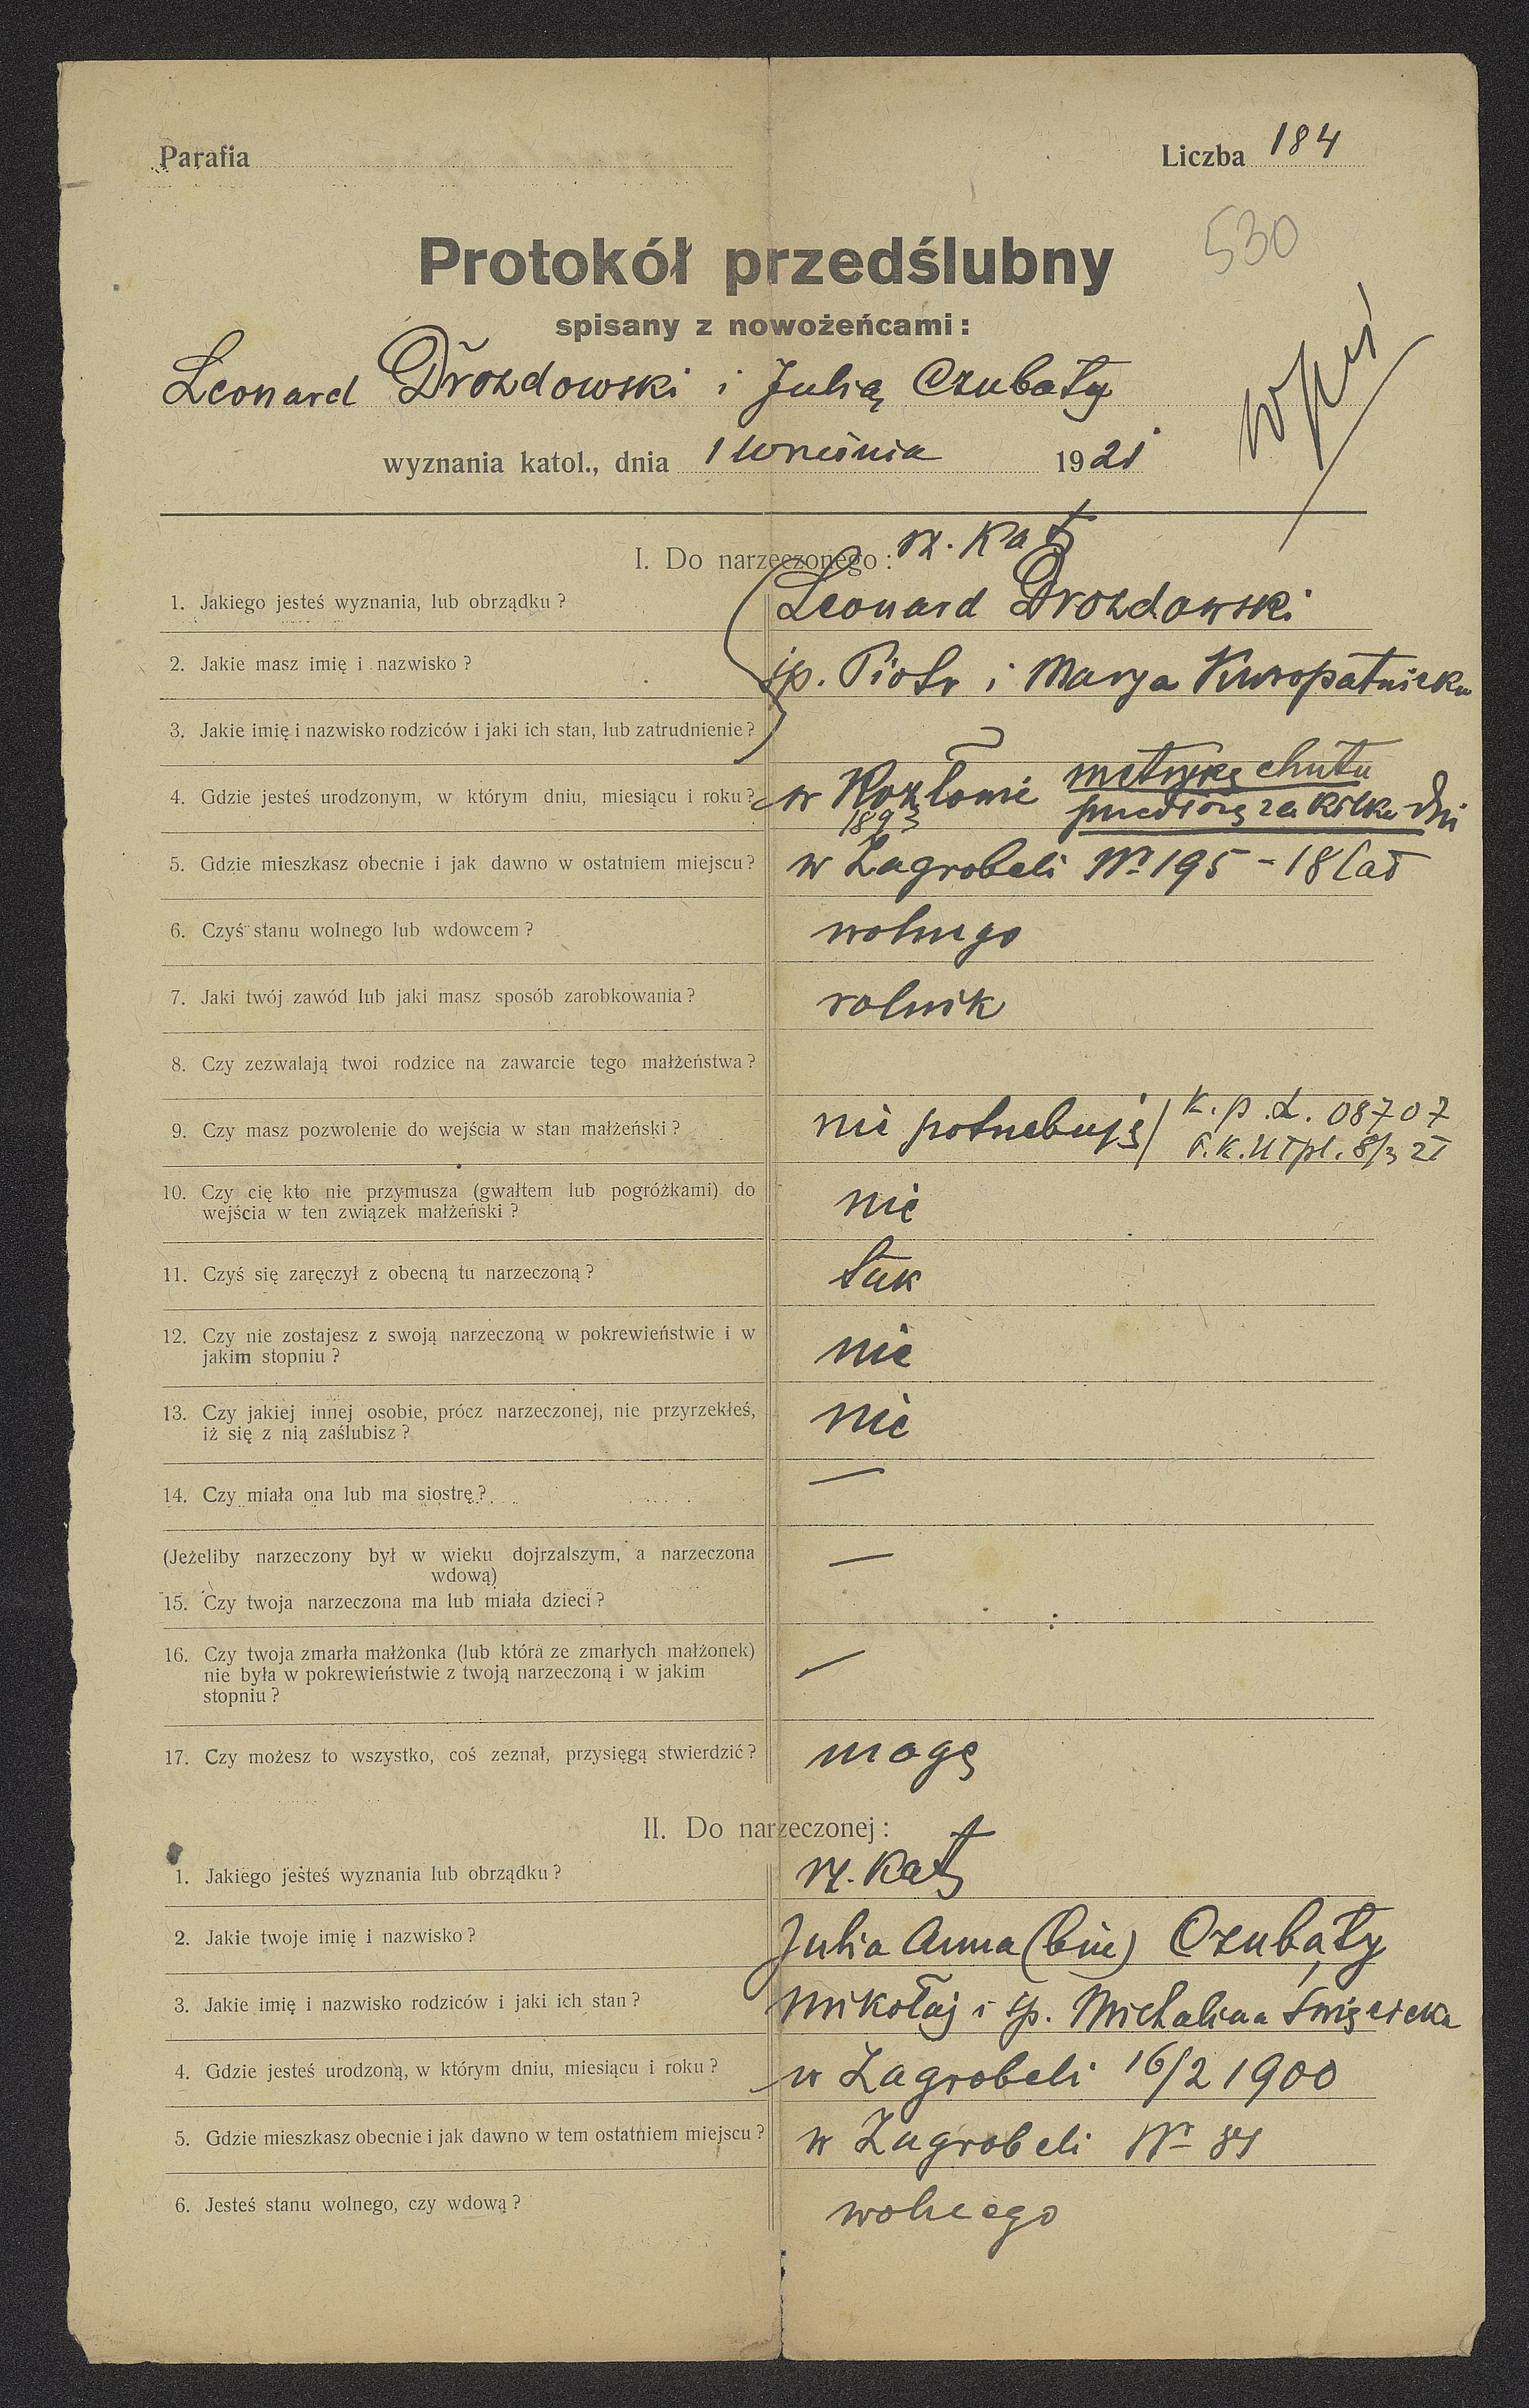 Parafia
Liczba 184
530
Protokół przedślubny
spisany z nowożeńcami:
Leonard Drozdowski i Julią Czubaty
wyznania katol., dnia 1 Września 1921
I. Do narzeczonego: rz. kat
1. Jakiego jesteś wyznania, lub obrządku?
Leonard Drozdowski
2. Jakie masz imię i nazwisko?
śp. Piotr i Marya Kuropatnicka
3. Jakie imię i nazwisko rodziców i jaki ich stan, lub zatrudnienie?
4. Gdzie jesteś urodzonym, w którym dniu, miesiącu i roku?
w Kozłowie metrykę chrztu
1893 przedłożę za kilka dni
5. Gdzie mieszkasz obecnie i jak dawno w ostatniem miejscu?
w Zagrobeli Nr 195 - 18 lat
6. Czyś stanu wolnego lub wdowcem?
wolnego
7. Jaki twój zawód lub jaki masz sposób zarobkowania?
rolnik
8. Czy zezwalają twoi rodzice na zawarcie tego małżeństwa?
9. Czy masz pozwolenie do wejścia w stan małżeński?
nie potrzebuję / K. p. L. 08707
10. Czy cię kto nie przymusza (gwałtem lub pogróżkami) do
wejścia w ten związek małżeński?
nie
11. Czyś się zaręczył z obecną tu narzeczoną?
tak
12. Czy nie zostajesz z swoją narzeczoną w pokrewieństwie i w
jakim stopniu?
nie
13. Czy jakiej innej osobie, prócz narzeczonej, nie przyrzekłeś,
iż się z nią zaślubisz?
nie
14. Czy miała ona lub ma siostrę?
—
(Jeżeliby narzeczony był w wieku dojrzalszym, a narzeczona
wdową)
15. Czy twoja narzeczona ma lub miała dzieci?
—
16. Czy twoja zmarła małżonka (lub która ze zmarłych małżonek)
nie była w pokrewieństwie z twoją narzeczoną i w jakim
stopniu?
—
17. Czy możesz to wszystko, coś zeznał, przysięgą stwierdzić?
mogę
II. Do narzeczonej:
1. Jakiego jesteś wyznania lub obrządku?
rz. kat
2. Jakie twoje imię i nazwisko?
Julia Anna (bin) Czubaty
3. Jakie imię i nazwisko rodziców i jaki ich stan?
Mikołaj i śp. Michalina Święcicka
4. Gdzie jesteś urodzoną, w którym dniu, miesiącu i roku?
w Zagrobeli 16/2 1900
5. Gdzie mieszkasz obecnie i jak dawno w tem ostatniem miejscu?
w Zagrobeli Nr
6. Jesteś stanu wolnego, czy wdową?
wolnego